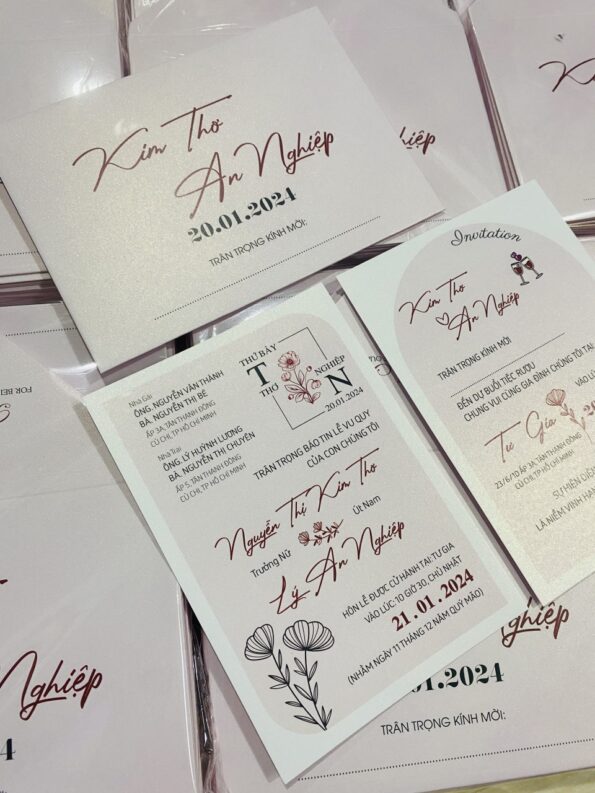 Kim Thơ
An Nghiệp
20.01.2024
TRÂN TRỌNG KÍNH MỜI:
Invitation
Kim Thơ
An Nghiệp
TRÂN TRỌNG KÍNH MỜI
ĐẾN DỰ BUỔI TIỆC RƯỢU
CHUNG VUI CÙNG GIA ĐÌNH CHÚNG TÔI TẠI
Tư Gia
VÀO LÚC
20
23/6/10 ẤP 3A, TÂN THẠNH ĐÔNG
CỦ CHI, TP HỒ CHÍ MINH
SỰ HIỆN DIỆN
LÀ NIỀM VINH HẠN
Nhà Gái
ÔNG. NGUYỄN VĂN THÀNH
BÀ. NGUYỄN THỊ BÉ
ẤP 3A, TÂN THẠNH ĐÔNG
CỦ CHI, TP HỒ CHÍ MINH
Nhà Trai
ÔNG. LÝ HUỲNH LƯƠNG
BÀ. NGUYỄN THỊ CHUYỀN
ẤP 5, TÂN THẠNH ĐÔNG
CỦ CHI, TP HỒ CHÍ MINH
THỨ BẢY
T
THƠ
NGHIỆP
N
20.01.2024
TRÂN TRỌNG BÁO TIN LỄ VU QUY
CỦA CON CHÚNG TÔI
Nguyễn Thị Kim Thơ
Trưởng Nữ
Út Nam
Lý An Nghiệp
HÔN LỄ ĐƯỢC CỬ HÀNH TẠI: TƯ GIA
VÀO LÚC: 10 GIỜ 30, CHỦ NHẬT
21.01.2024
(NHẰM NGÀY 11 THÁNG 12 NĂM QUÝ MÃO)
Nghiệp
4
iệp
Nghiệp
01.2024
TRÂN TRỌNG KÍNH MỜI: